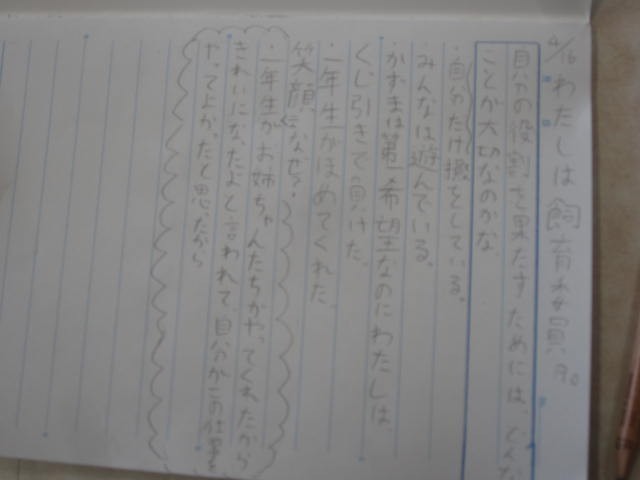 4/16 わたしは飼育委員 P.90
自分の役割を果たすためには、どんな
ことが大切なのかな
・自分だけ損をしている。
・みんなは遊んでいる。
・かずまは第一希望なのにわたしは
くじ引きで負けた。
・一年生がほめてくれた
笑顔←なぜ？
・一年生がお姉ちゃんたちがやってくれたから
きれいになったよと言われて、自分がこの仕事を
やってよかったと思ったから